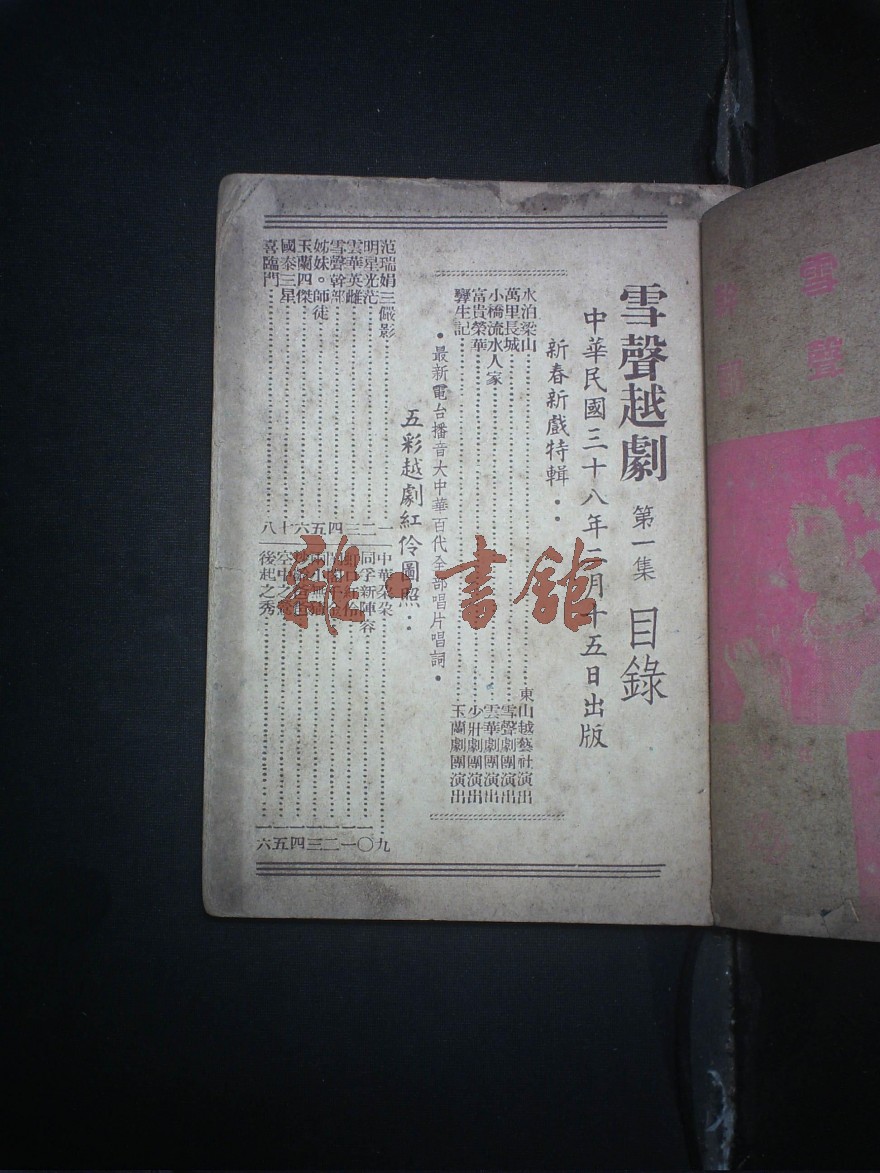 雪聲越劇 第一集 目錄
中華民國三十八年二月十五日出版
新春新戲特輯：
水泊梁山 東山越藝社演出
萬里長城 雪聲劇團演出
小橋流水人家 雲華劇團演出
富貴榮華 少壯劇團演出
孽生記 玉蘭劇團演出
•最新電台播音大中華百代全部唱片唱詞•
五彩越劇紅伶圖照：
范瑞娟三儷影 一
明星光茫 二
雲華英雌 三
雪聲幹部 四
姊妹。師徒 五
玉蘭四傑 六
國泰三星 十
喜臨門 八
中華朵朵 九
同孚新陣容 一〇
一一
一二
一三
一四
空中之 一五
後起之秀 一六
雜·書館
雪聲